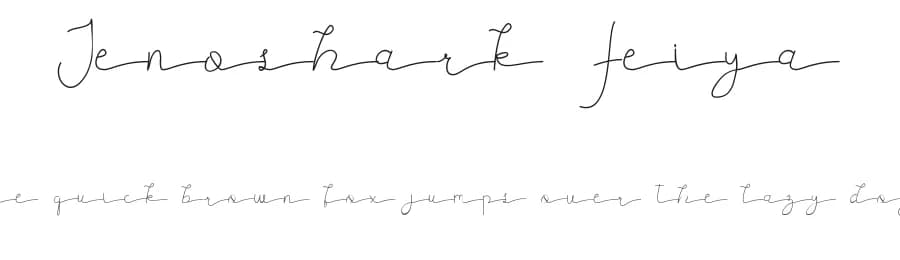 Jenoshark feiya
e quick brown fox jumps over the lazy do